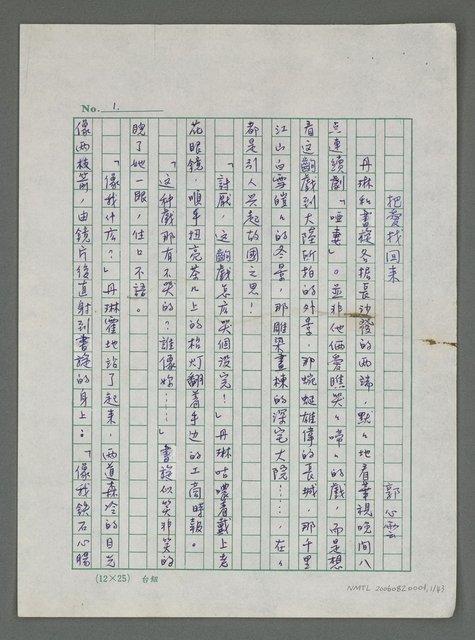 No. 1.
把愛找回來
郭心雲
丹琳和書旋各據長沙發的兩端，默々地看華視晚間八
點連續劇「啞妻」。並非他倆愛瞧哭々啼々的戲，而是想
看這齣戲到大陸所拍的外景，那蜿蜒雄偉的長城，那千里
江山白雪皚々的冬景，那雕梁畫棟的深宅大院……，在々
都是引人興起故國之思！
「討厭，這齣戲怎底哭個沒完！」丹琳咕噥着戴上老
花眼鏡，順手扭亮茶几上的枱灯翻着手边的工商時報。
「这种戲那有不哭的？誰像妳……」書旋似笑非笑的
睨了她一眼，住口不語。
「像我什底？」丹琳霍地站了起來，兩道森冷的目光
像兩枝箭，由鏡片後直射到書旋的身上：「像我鐵石心腸
(12×25) 台細
NMTL 20060820001, 1/43